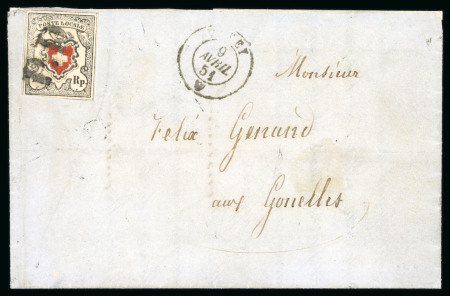 POSTE LOCALE
Rp
9
AVRIL
51
Monsieur
Felix Genand
aux Gonelles